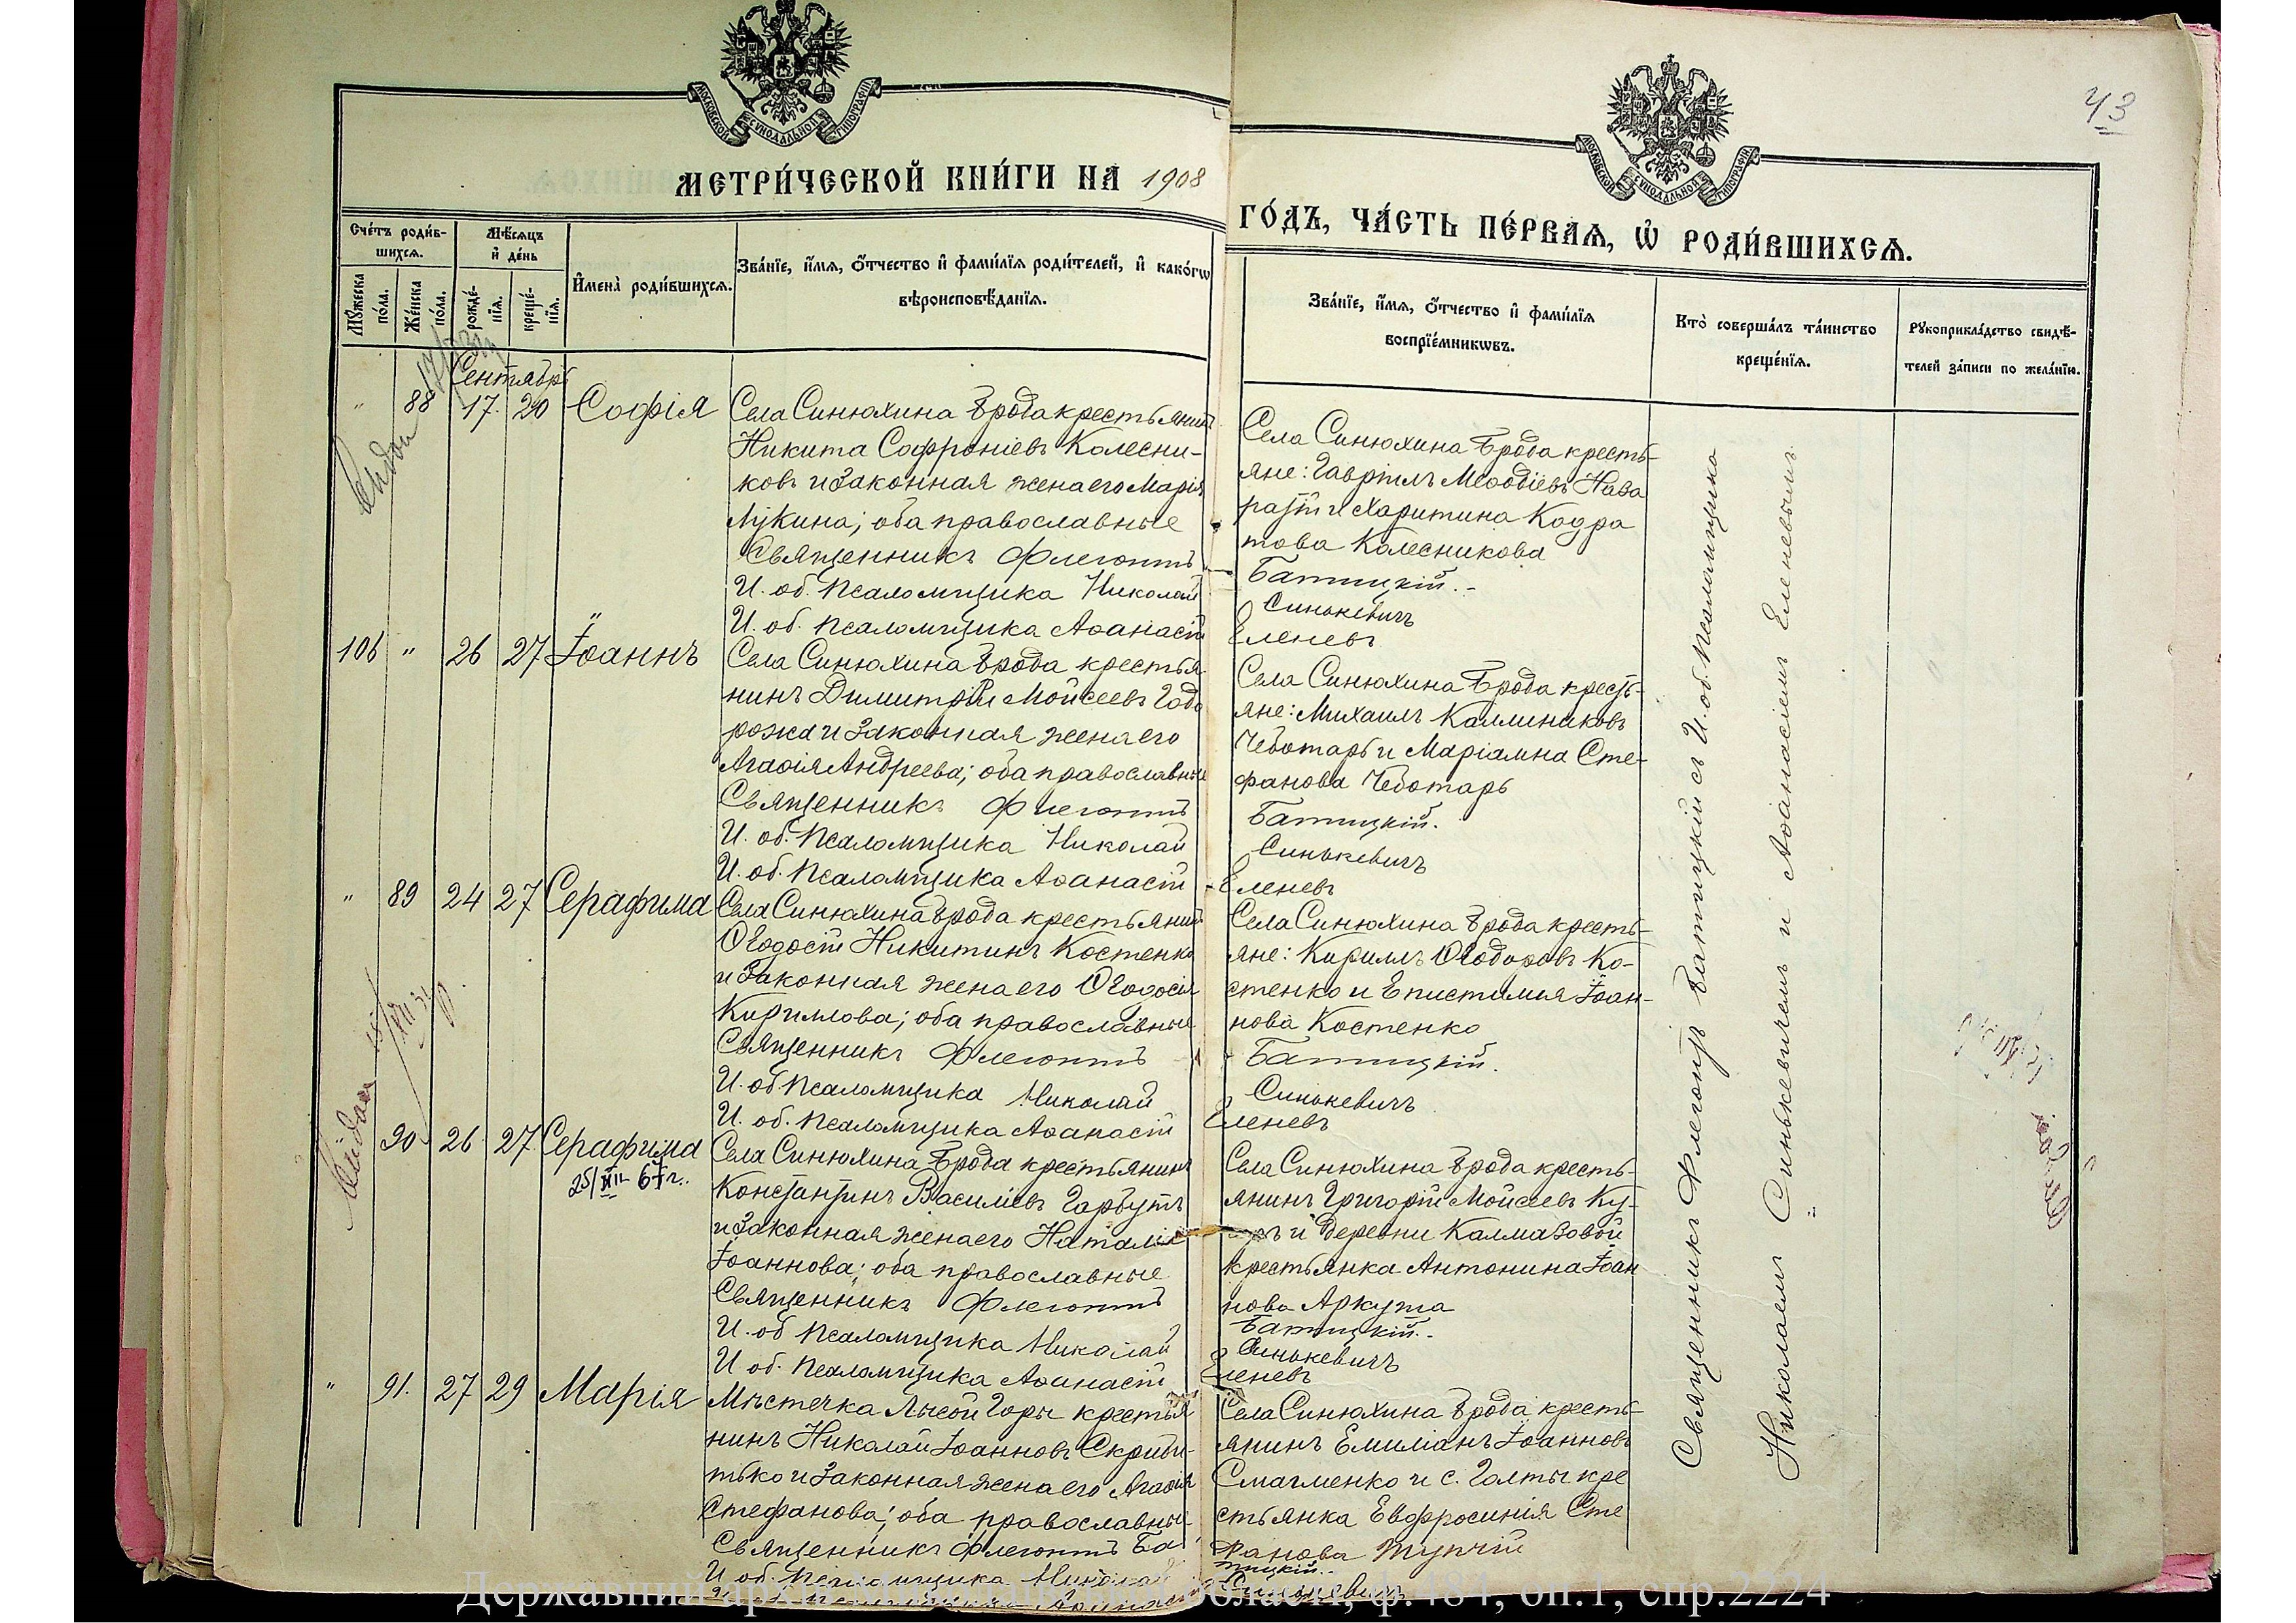 43
МЕТРИ́ЧЕСКОЙ КНИ́ГИ НА 1908
ГО́ДЪ, ЧА́СТЬ ПЕ́РВАѦ, Ѡ҆ РОДИ́ВШИХСѦ.
Сче́тъ роди́в-
шихсѧ.
Мꙋ́жеска пола.
Же́нска пола.
Мѣ́сяцъ
и҆ де́нь
рожде́-
нїѧ.
креще́-
нїѧ.
И҆мена̀ роди́вшихсѧ.
Зва́нїе, и҆́мѧ, ѻ҆́тчество и҆ фами́лїѧ роди́телей, и҆ како́гѡ
вѣроисповѣ́данїѧ.
Зва́нїе, и҆́мѧ, ѻ҆́тчество и҆ фами́лїѧ
воспрїе́мникѡвъ.
Кто̀ соверша́лъ та́инство
креще́нїѧ.
Рꙋкоприкла́дство свидѣ́-
телей за́писи по жела́нїю.
Сентябрь
" 88 17. 20 Софія
Села Синюхина Брода крестьянинъ
Никита Софроніевъ Колесни-
ковъ и законная жена его Марія
Лукина; оба православные
Священникъ Флегонтъ
И. об. Псаломщика Николай
И. об. Псаломщика Аѳанасій
Села Синюхина Брода кресть-
яне: Гавріилъ Меѳодіевъ
и Харитина Кодра
това Колесникова
Батицкій.
Синькевичъ
Еленевъ
106 " 26 27 Іоаннъ
Села Синюхина Брода крестья
нинъ Димитрій Мойсеевъ Годо
рожа и законная жена его
Агаѳія Андреева; оба православные
Священникъ Флегонтъ
И. об. Псаломщика Николай
И. об. Псаломщика Аѳанасій
Села Синюхина Брода кресть-
яне: Михаилъ Каллиниковъ
Чеботарь и Маріамна Сте-
фанова Чеботарь
Батицкій.
Синькевичъ
Еленевъ
" 89 24 27 Серафима
Села Синюхина Брода крестьянинъ
Ѳеодосій Никитинъ Костенко
и законная жена его Ѳеодосія
Кириллова; оба православные
Священникъ Флегонтъ
И. об Псаломщика Николай
И. об. Псаломщика Аѳанасій
Села Синюхина Брода кресть-
яне: Кириллъ Ѳеодоровъ Ко-
стенко и Епистимія Іоан-
нова Костенко
Батицкій.
Синькевичъ
Еленевъ
90 26 27 Серафима
25/XII 67 г.
Села Синюхина Брода крестьянинъ
Константинъ Василіевъ Гарбутъ
и законная жена его Наталія
Іоаннова; оба православные
Священникъ Флегонтъ
И. об Псаломщика Николай
И об. Псаломщика Аѳанасій
Села Синюхина Брода кресть-
янинъ Григорій Мойсеевъ
и деревни Калмазовой
крестьянка Антонина Іоан
нова Аркуша
Батицкій.
Синькевичъ
Еленевъ
" 91. 27 29 Марія
Мѣстечка Лысой Горы крестья
нинъ Николай Іоанновъ
и законная жена его Агаѳія
Стефанова; оба православные
Священникъ Флегонтъ Ба
И об. Псаломщика Николай
Села Синюхина Брода кресть-
янинъ Емиліанъ Іоанновъ
Смагленко и с. Голты кре
стьянка Евфросинія Сте
фанова
тицкій.
Синькевичъ
Священникъ Флегонтъ Батицкій съ И. об. Псаломщика
Николаемъ Синькевичемъ и Аѳанасіемъ Еленевымъ
Державний архів Миколаївської області, ф.484, оп.1, спр.2224